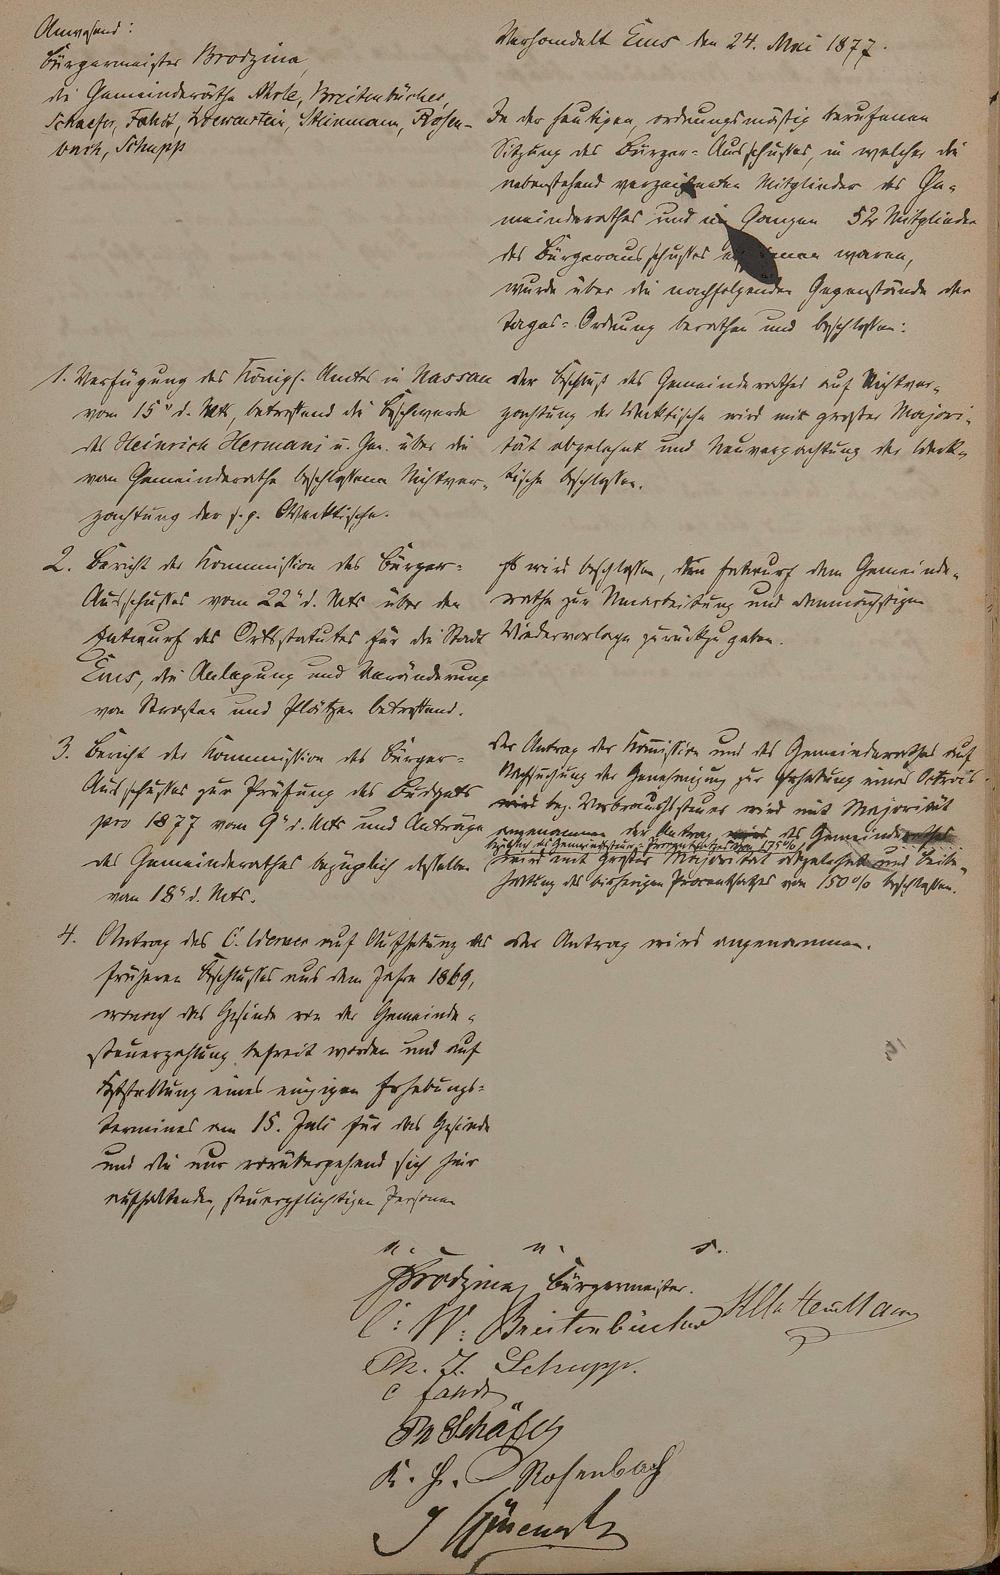 Anwesend:
Bürgermeister Brodzina,
die Gemeinderäthe Breitenbücher,
Schaefer, Fandt, Loewenstein, Steinmann, Rosen-
bach, Schupp
Verhandelt Ems den 24. Mai 1877.
In der heutigen, ordnungsmäßig berufenen
Sitzung des Bürger-Ausschußes, in welcher die
nebenstehend verzeichneten Mitglieder des Ge-
meinderathes und im Ganzen 52 Mitglieder
des Bürgerausschußes waren,
wurde über die nachfolgenden Gegenstände der
Tages-Ordnung berathen und beschlossen:
1. Verfügung des Königl. Amtes in Nassau
vom 15" d. Mts, betreffend die Beschwerde
des Heinrich Hermani u. Gen. über die
vom Gemeinderathe beschlossene Nichtver-
pachtung der s. g.
Der Beschluß des Gemeinderathes auf Nichtver-
pachtung der wird mit großer Majori-
tät abgelehnt und Neuverpachtung der
tische beschlossen.
2. Bericht der Kommission des Bürger-
Ausschußes vom 22" d. Mts über den
Entwurf des Ortsstatutes für die Stadt
Ems, die Anlegung und Veränderung
von Straßen und Plätzen betreffend.
Es wird beschlossen, den Entwurf dem Gemeinde-
rathe zur Umarbeitung und demnächstigen
Wiedervorlage zurückzugeben.
3. Bericht der Kommission des Bürger-
Ausschußes zur Prüfung des Budgets
pro 1877 vom 9" d. Mts und Anträge
des Gemeinderathes bezüglich desselben
vom 18" d. Mts.
Der Antrag der Kommission und des Gemeinderathes auf
Nachsuchung der Genehmigung zur Erhebung eines Octrois
wird bez. Verbrauchssteuer wird mit Majorität
angenommen der Antrag wird des Gemeinderathes
bezüglich des Gemeindesteuer-Procentsatzes von 175%
wird mit großer Majorität abgelehnt und Beibe-
haltung des bisherigen Procentsatzes von 150% beschlossen.
4. Antrag des C. Werner auf Aufhebung des
früheren Beschlußes aus dem Jahre 1869,
wonach das Gesinde von der Gemeinde-
steuerzahlung befreit worden und auf
Feststellung eines einzigen Erhebungs-
termines am 15. Juli für das Gesinde
und die nur vorübergehend sich hier
aufhaltenden, steuerpflichtigen Personen
Der Antrag wird angenommen.
a. u. s.
Brodzina, Bürgermeister.
C: W: Breitenbücher
Ph. J. Schupp.
C Fandt
Ph Schäfer
K. H. Rosenbach